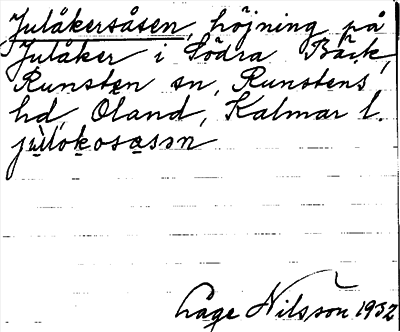 Julåkersåsen, höjning på
Julåker i Södra Bäck,
Runsten sn, Runstens
hd, Öland, Kalmar l.
Åge Nilsson 1932